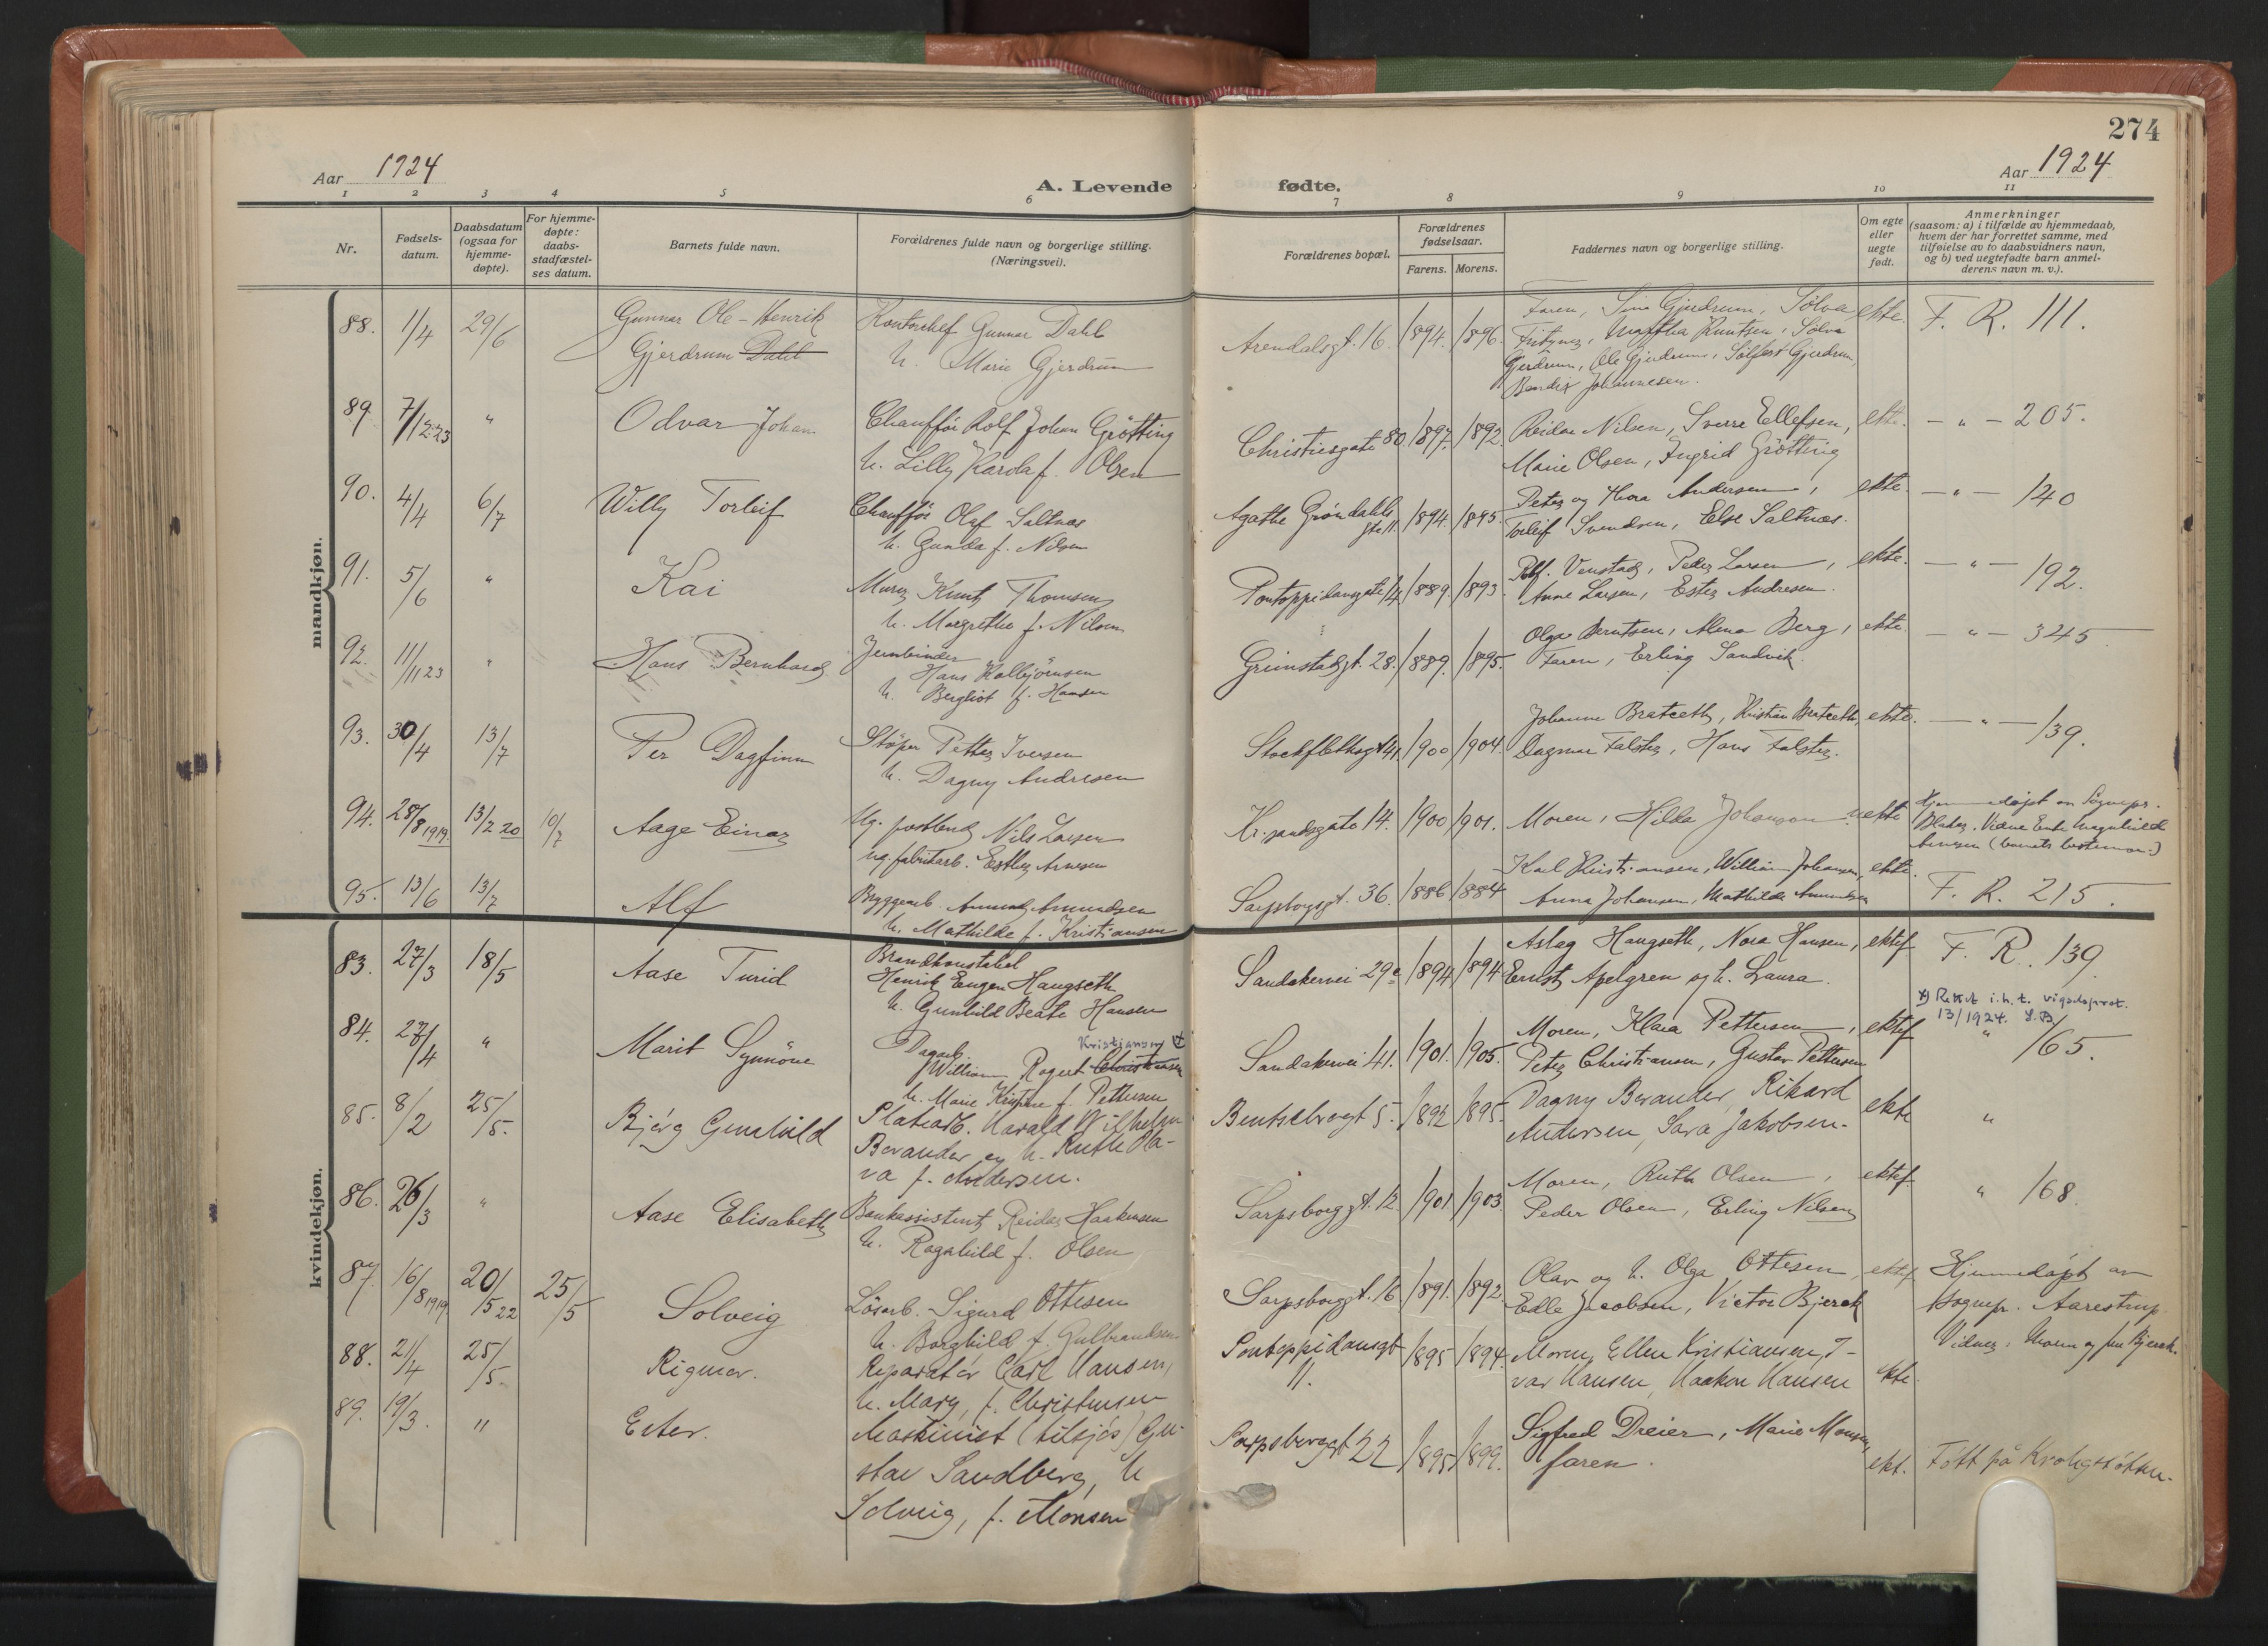 274
Aar 1924
A. Levende fødte.
Aar 1924
1 2 3 4 5 6 7 8 9 10 11
Nr.
Fødsels-
datum.
Daabsdatum
(ogsaa for
hjemme-
døpte).
For hjemme-
døpte:
daabs-
stadfæstel-
ses datum.
Barnets fulde navn.
Forældrenes fulde navn og borgerlige stilling.
(Næringsvei).
Forældrenes bopæl.
Forældrenes
fødselsaar.
Farens. Morens.
Faddernes navn og borgerlige stilling.
Om egte
eller
uegte
født.
Anmerkninger
(saasom: a) i tilfælde av hjemmedaab,
hvem der har forrettet samme, med
tilføielse av to daabsvidners navn,
og b) ved uegtefødte barn anmel-
derens navn m. v.).
mandkjøn.
88. 1/4 29/6
Gunnar Ole-Henrik
Gjerdrum Dahl
Kontorchef Gunnar Dahl
h. Marie Gjerdrum
Arendalsgt. 16. 1894. 1896.
Faren, Gjerdrum, Sølva
Knutsen, Sølva
Gjerdrum, Ole Gjerdrum, Gjerdrum,
Bendix Johannesen.
ekte. F. R. 111.
89. 7/12 23 "
Odvar Johan
Chaufför Rolf Johan Grötting
h. Lilly Karola f. Olsen
Christiesgate 80. 1897. 1892.
Reidar Nilsen, Sverre Ellefsen,
Marie Olsen, Ingrid Grötting
ekte. — " — 205.
90. 4/4 6/7
Willy Torleif
Chaufför Olaf Saltnes
h. Gunda f. Nilsen
Agathe Gröndahls
gte 11. 1894. 1895.
Peter og Thora Andersen,
Torleif Svendsen, Else Saltnes.
ekte. — " — 140
91. 5/6 "
Kai
Murer Knut Thomsen
h. Margrethe f. Nilsen
Pontoppidansgate 14. 1889. 1893.
Venstad, Peder Larsen,
Anne Larsen, Ester Andresen.
ekte. — " — 192.
92. 11/11 23 "
Hans Bernhard
Jernbinder
Hans Kolbjörnsen
h. Bergliot f. Hansen
Grimstadgt. 28. 1889. 1895.
Olga Berntsen, Alma Berg,
Faren, Erling Sandvik.
ekte. — " — 345
93. 30/4 13/7
Per Dagfinn
Støper Petter Iversen
h. Dagny Andresen
Stockflethsgt 41. 1900 1904.
Johanne Brateeth, Kristian Brateeth,
Dagmar Falster, Hans Falster.
ekte. — " — 139.
94. 28/8 1919 13/2 20 10/7
Aage Einar
Ug. postbud Nils Larsen
ug. fabrikarb. Esther Arnesen
Kr.sandsgate 14. 1900 1901.
Moren, Hilda Johansen
uekte
Hjemmedøpt av Sognepr.
Vidne Enke Magnhild
Arnesen (barnets bestemor.)
95. 13/6 13/7
Alf
Bryggearb. Amund Amundsen
h. Mathilde f. Kristiansen
Sarpsborggt. 36. 1886 1884
Karl Kristiansen, William Johansen,
Anna Johansen, Mathilde Amundsen
ekte. F. R. 215.
kvindekjøn.
83. 27/3 18/5
Aase Turid
Brandkonstabel
Henrik Eugen Haugseth
h. Gunhild Beate Hansen
Sandakervei 29c 1894 1894
Aslag Haugseth, Nora Hansen,
Ernst Apelgren og h. Laura.
ektef. F. R. 139.
84. 27/4 "
Marit Synnöve
Dagarb. Kristiansen x)
William Rogert Christiansen
h. Marie Kristine f. Pettersen
Sandakervei 41. 1901. 1905.
Moren, Klara Pettersen,
Peter Christiansen, Gustav Pettersen
ektef.
x) Rettet i.h.t. vigselsprot.
13/1924. S.B.
" 165.
85. 8/2 25/5.
Bjørg Gunhild
Platearb. Harald Wilhelm
Berander og h. Ruth Ola-
va f. Andersen.
Bentsebrogt 5. 1892 1895.
Dagny Berander, Rikard
Andersen, Sara Jakobsen.
ekte "
86. 26/3 "
Aase Elisabeth
Bankassistent Reidar Haakensen
h. Ragnhild f. Olsen
Sarpsborggt. 12. 1901 1903.
Moren, Ruth Olsen,
Peder Olsen, Erling Nilsen
ektef. " 168.
87. 16/8 1919 20/5 22 25/5
Solveig
Løsarb. Sigurd Ottesen
h. Borghild f. Gulbrandsen
Sarpsborggt. 16 1891. 1892.
Olav og h. Olga Ottesen,
Edle Jacobsen, Victor Bjerck
ektef.
Hjemmedøpt av
sognepr. Aarestrup.
Vidner: Moren og fru Bjerck.
88. 21/4 25/5.
Rigmor.
Reparatør Carl Hansen,
h. Mary, f. Christensen
Pontoppidansgt
11. 1895 1894.
Moren, Ellen Kristiansen, I-
var Hansen, Haakon Hansen
ekte.
89. 19/3. "
Ester.
Maskinist (tilsjøs) Gu-
stav Sandberg, h
Solveig, f. Monsen
Sarpsborggt 22 1895 1899.
Sigfred Dreier, Marie Monsen,
faren.
ekt. Født på Krohgstøtten.